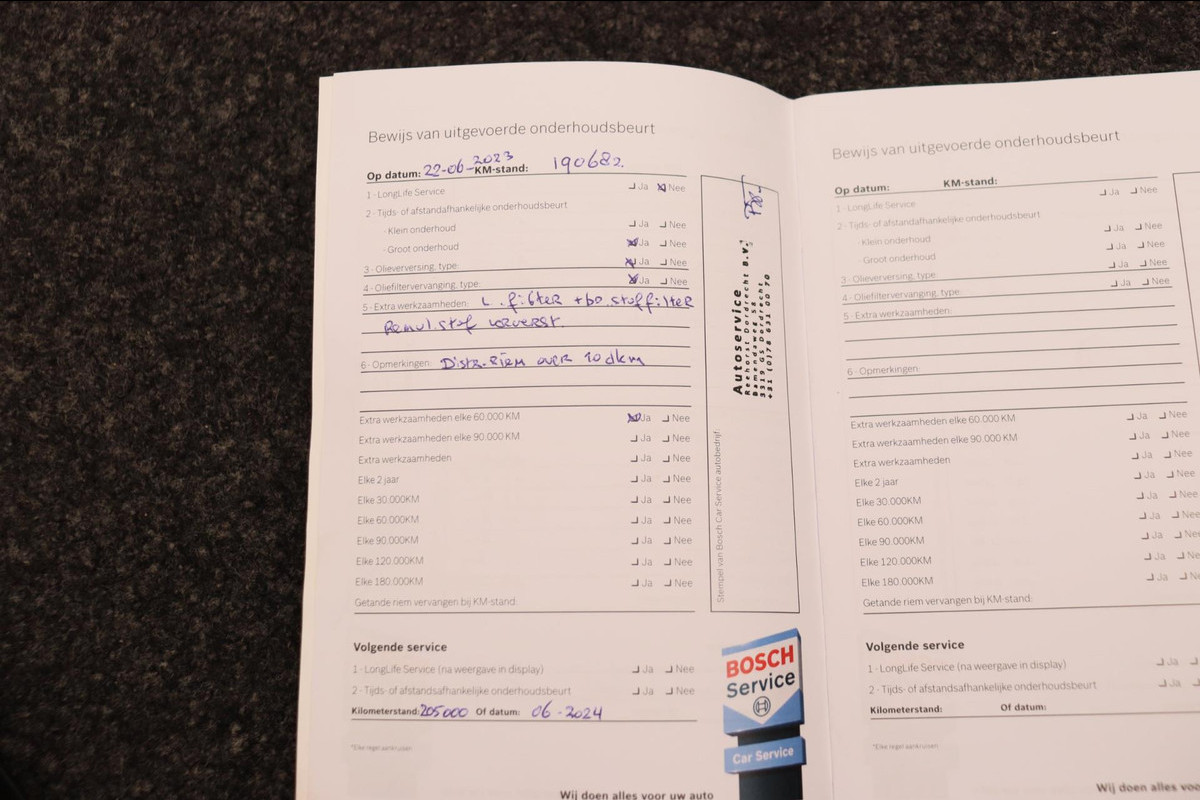 Bewijs van uitgevoerde onderhoudsbeurt
Op datum: 22-06-2023 KM-stand: 190682.
1 - LongLife Service Ja Nee
2 - Tijds- of afstandafhankelijke onderhoudsbeurt
- Klein onderhoud Ja Nee
- Groot onderhoud Ja Nee
3 - Olieverversing, type: Ja Nee
4 - Oliefiltervervanging, type: Ja Nee
5 - Extra werkzaamheden: L. filter + po. stoffilter
Remvlstof ververst.
6 - Opmerkingen: Distr. Riem over 10 dkm
Extra werkzaamheden elke 60.000 KM Ja Nee
Extra werkzaamheden elke 90.000 KM Ja Nee
Extra werkzaamheden Ja Nee
Elke 2 jaar Ja Nee
Elke 30.000KM Ja Nee
Elke 60.000 KM Ja Nee
Elke 90.000KM Ja Nee
Elke 120.000 KM Ja Nee
Elke 180.000KM Ja Nee
Getande riem vervangen bij KM-stand:
Volgende service
1 - LongLife Service (na weergave in display) Ja Nee
2 - Tijds- of afstandsafhankelijke onderhoudsbeurt Ja Nee
Kilometerstand: 205000 Of datum: 06-2024
*Elke regel aankruisen
Wij doen alles voor uw auto
Stempel van Bosch Car Service autobedrijf:
Autoservice
Reehorst Dordrecht B.V.
3319 GS Dordrecht
+31 (0)78 631 00 70
BOSCH
Service
Car Service
Bewijs van uitgevoerde onderhoudsbeurt
Op datum: KM-stand:
1 - LongLife Service Ja Nee
2 - Tijds- of afstandafhankelijke onderhoudsbeurt
- Klein onderhoud Ja Nee
- Groot onderhoud Ja Nee
3 - Olieverversing, type: Ja Nee
4 - Oliefiltervervanging, type: Ja Nee
5 - Extra werkzaamheden:
6 - Opmerkingen:
Extra werkzaamheden elke 60.000 KM Ja Nee
Extra werkzaamheden elke 90.000 KM Ja Nee
Extra werkzaamheden Ja Nee
Elke 2 jaar Ja Nee
Elke 30.000KM Ja Nee
Elke 60.000KM Ja Nee
Elke 90.000KM Ja Nee
Elke 120.000 KM Ja Nee
Elke 180.000KM Ja
Getande riem vervangen bij KM-stand:
Volgende service
1 - LongLife Service (na weergave in display) Ja
2 - Tijds- of afstandsafhankelijke onderhoudsbeurt Ja
Kilometerstand: Of datum:
*Elke regel aankruisen
Wij doen alles voor uw